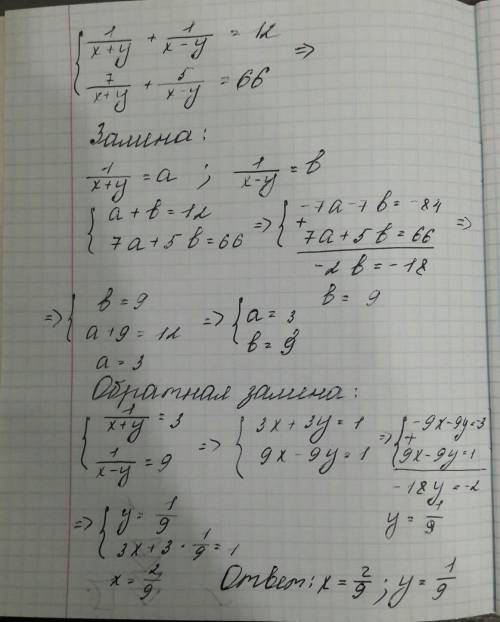 { 1/(x+y) + 1/(x-y) = 12 =>
7/(x+y) + 5/(x-y) = 66
Замена:
1/(x+y) = a ; 1/(x-y) = b
{ a + b = 12 => { -7a - 7b = -84 =>
7a + 5b = 66 + 7a + 5b = 66
-2b = -18
b = 9
=> { b = 9 => { a = 3
a + 9 = 12 b = 9
a = 3
Обратная замена:
{ 1/(x+y) = 3 => { 3x + 3y = 1 => { -9x - 9y = -3
1/(x-y) = 9 9x - 9y = 1 + 9x - 9y = 1
-18y = -2
y = 1/9
=> { y = 1/9
3x + 3 · 1/9 = 1
x = 2/9 Ответ: x = 2/9 ; y = 1/9